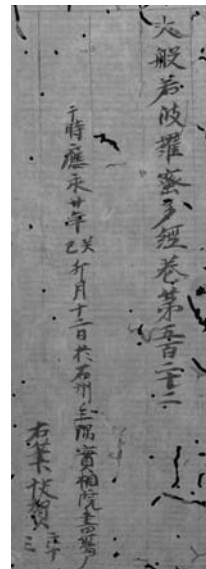 大般若波羅蜜多經巻第五百二十二
于時應永廿年癸巳卯月十二日於石州三隅實相院書寫了
右筆快賀